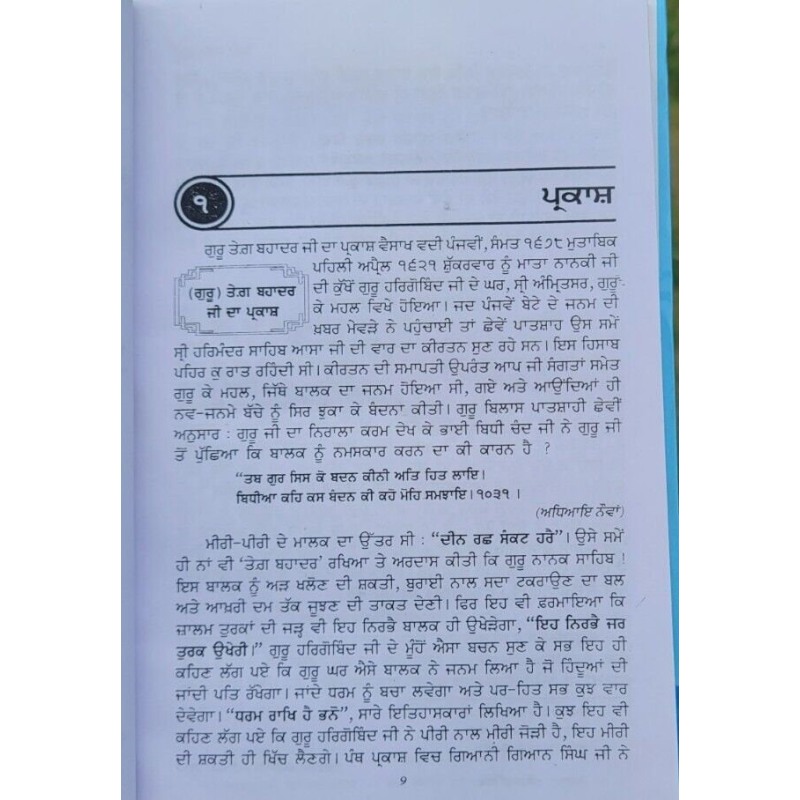 ੧
ਪ੍ਰਕਾਸ਼
ਗੁਰੂ ਤੇਗ਼ ਬਹਾਦਰ ਜੀ ਦਾ ਪ੍ਰਕਾਸ਼ ਵੈਸਾਖ ਵਦੀ ਪੰਜਵੀਂ, ਸੰਮਤ ੧੬੭੮ ਮੁਤਾਬਿਕ
(ਗੁਰੂ) ਤੇਗ਼ ਬਹਾਦਰ
ਜੀ ਦਾ ਪ੍ਰਕਾਸ਼
ਪਹਿਲੀ ਅਪ੍ਰੈਲ ੧੬੨੧ ਸ਼ੁੱਕਰਵਾਰ ਨੂੰ ਮਾਤਾ ਨਾਨਕੀ ਜੀ
ਦੀ ਕੁੱਖੋਂ ਗੁਰੂ ਹਰਿਗੋਬਿੰਦ ਜੀ ਦੇ ਘਰ, ਸ੍ਰੀ ਅੰਮ੍ਰਿਤਸਰ, ਗੁਰੂ
ਕੇ ਮਹਲ ਵਿਖੇ ਹੋਇਆ। ਜਦ ਪੰਜਵੇਂ ਬੇਟੇ ਦੇ ਜਨਮ ਦੀ
ਖ਼ਬਰ ਮੇਵੜੇ ਨੇ ਪਹੁੰਚਾਈ ਤਾਂ ਛੇਵੇਂ ਪਾਤਸ਼ਾਹ ਉਸ ਸਮੇਂ
ਸ੍ਰੀ ਹਰਿਮੰਦਰ ਸਾਹਿਬ ਆਸਾ ਜੀ ਦੀ ਵਾਰ ਦਾ ਕੀਰਤਨ ਸੁਣ ਰਹੇ ਸਨ। ਇਸ ਹਿਸਾਬ
ਪਹਿਰ ਕੁ ਰਾਤ ਰਹਿੰਦੀ ਸੀ। ਕੀਰਤਨ ਦੀ ਸਮਾਪਤੀ ਉਪਰੰਤ ਆਪ ਜੀ ਸੰਗਤਾਂ ਸਮੇਤ
ਗੁਰੂ ਕੇ ਮਹਲ, ਜਿੱਥੇ ਬਾਲਕ ਦਾ ਜਨਮ ਹੋਇਆ ਸੀ, ਗਏ ਅਤੇ ਆਉਂਦਿਆਂ ਹੀ
ਨਵ-ਜਨਮੇ ਬੱਚੇ ਨੂੰ ਸਿਰ ਝੁਕਾ ਕੇ ਬੰਦਨਾ ਕੀਤੀ। ਗੁਰੂ ਬਿਲਾਸ ਪਾਤਸ਼ਾਹੀ ਛੇਵੀਂ
ਅਨੁਸਾਰ : ਗੁਰੂ ਜੀ ਦਾ ਨਿਰਾਲਾ ਕਰਮ ਦੇਖ ਕੇ ਭਾਈ ਬਿਧੀ ਚੰਦ ਜੀ ਨੇ ਗੁਰੂ ਜੀ
ਤੋਂ ਪੁੱਛਿਆ ਕਿ ਬਾਲਕ ਨੂੰ ਨਮਸਕਾਰ ਕਰਨ ਦਾ ਕੀ ਕਾਰਨ ਹੈ ?
“ਤਬ ਗੁਰ ਸਿਸ ਕੋ ਬਦਨ ਕੀਨੀ ਅਤਿ ਹਿਤ ਲਾਇ।
ਬਿਧੀਆ ਕਹਿ ਕਸ ਬੰਦਨ ਕੀ ਕਹੋ ਮੋਹਿ ਸਮਝਾਇ। ੧੦੩੧।
(ਅਧਿਆਇ ਨੌਵਾਂ)
ਮੀਰੀ-ਪੀਰੀ ਦੇ ਮਾਲਕ ਦਾ ਉੱਤਰ ਸੀ : “ਦੀਨ ਰਛ ਸੰਕਟ ਹਰੈ”। ਉਸੇ ਸਮੇਂ
ਹੀ ਨਾਂ ਵੀ ‘ਤੇਗ਼ ਬਹਾਦਰ’ ਰਖਿਆ ਤੇ ਅਰਦਾਸ ਕੀਤੀ ਕਿ ਗੁਰੂ ਨਾਨਕ ਸਾਹਿਬ !
ਇਸ ਬਾਲਕ ਨੂੰ ਅੜ ਖਲੋਣ ਦੀ ਸ਼ਕਤੀ, ਬੁਰਾਈ ਨਾਲ ਸਦਾ ਟਕਰਾਉਣ ਦਾ ਬਲ
ਅਤੇ ਆਖ਼ਰੀ ਦਮ ਤੱਕ ਜੂਝਣ ਦੀ ਤਾਕਤ ਦੇਣੀ। ਫਿਰ ਇਹ ਵੀ ਫ਼ਰਮਾਇਆ ਕਿ
ਜ਼ਾਲਮ ਤੁਰਕਾਂ ਦੀ ਜੜ੍ਹ ਵੀ ਇਹ ਨਿਰਭੈ ਬਾਲਕ ਹੀ ਉਖੇੜੇਗਾ, “ਇਹ ਨਿਰਭੈ ਜਰ
ਤੁਰਕ ਉਖੇਰੀ।” ਗੁਰੂ ਹਰਿਗੋਬਿੰਦ ਜੀ ਦੇ ਮੂੰਹੋਂ ਐਸਾ ਬਚਨ ਸੁਣ ਕੇ ਸਭ ਇਹ ਹੀ
ਕਹਿਣ ਲੱਗ ਪਏ ਕਿ ਗੁਰੂ ਘਰ ਐਸੇ ਬਾਲਕ ਨੇ ਜਨਮ ਲਿਆ ਹੈ ਜੋ ਹਿੰਦੂਆਂ ਦੀ
ਜਾਂਦੀ ਪਤਿ ਰੱਖੇਗਾ। ਜਾਂਦੇ ਧਰਮ ਨੂੰ ਬਚਾ ਲਵੇਗਾ ਅਤੇ ਪਰ-ਹਿਤ ਸਭ ਕੁਝ ਵਾਰ
ਦੇਵੇਗਾ। “ਧਰਮ ਰਾਖਿ ਹੈ ਭਨੋ”, ਸਾਰੇ ਇਤਿਹਾਸਕਾਰਾਂ ਲਿਖਿਆ ਹੈ। ਕੁਝ ਇਹ ਵੀ
ਕਹਿਣ ਲੱਗ ਪਏ ਕਿ ਗੁਰੂ ਹਰਿਗੋਬਿੰਦ ਜੀ ਨੇ ਪੀਰੀ ਨਾਲ ਮੀਰੀ ਜੋੜੀ ਹੈ, ਇਹ ਮੀਰੀ
ਦੀ ਸ਼ਕਤੀ ਹੀ ਖਿੱਚ ਲੈਣਗੇ। ਪੰਥ ਪ੍ਰਕਾਸ਼ ਵਿਚ ਗਿਆਨੀ ਗਿਆਨ ਸਿੰਘ ਜੀ ਨੇ
੭